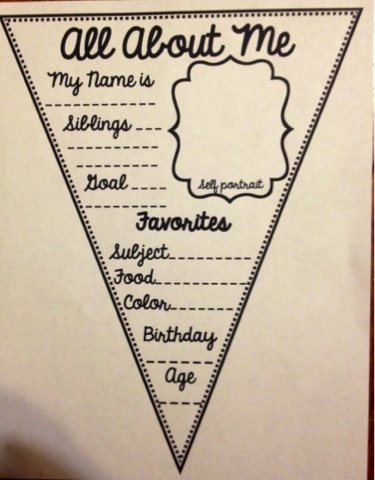 All About Me
My Name is
Siblings
Goal
Self portrait
Favorites
Subject
Food
Color
Birthday
Age